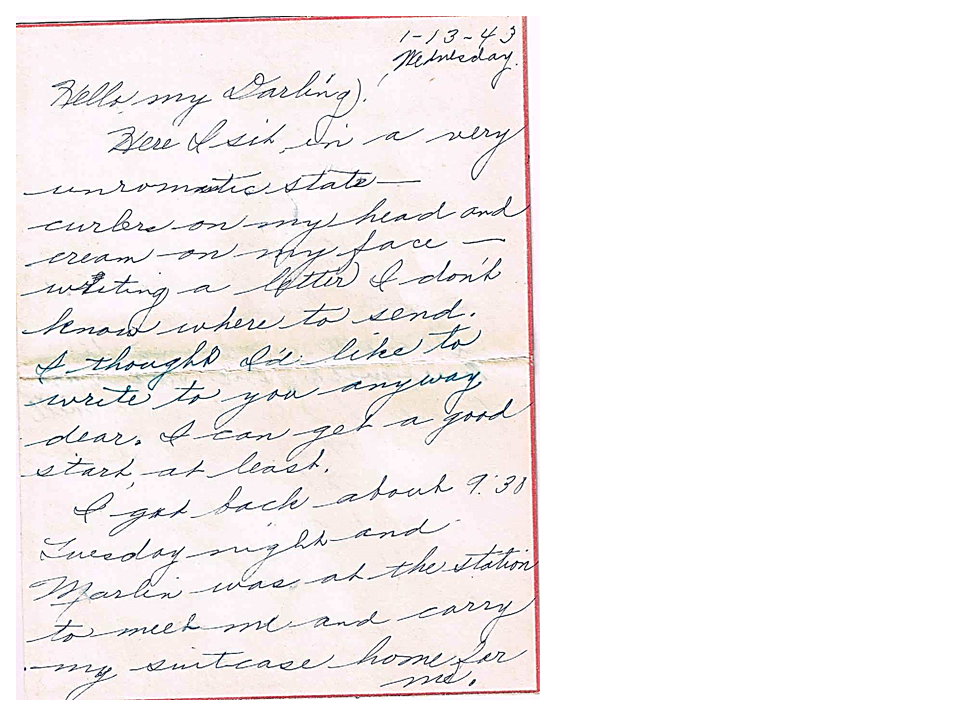 1-13-43
Wednesday.
Hello my Darling,
Here I sit in a very
unromatic state —
curlers on my head and
cream on my face —
writing a letter I don't
know where to send.
I thought I'd like to
write to you anyway
dear. I can get a good
start, at least.
I got back about 9:30
Tuesday night and
Marlin was at the station
to meet me and carry
my suitcase home for
me.